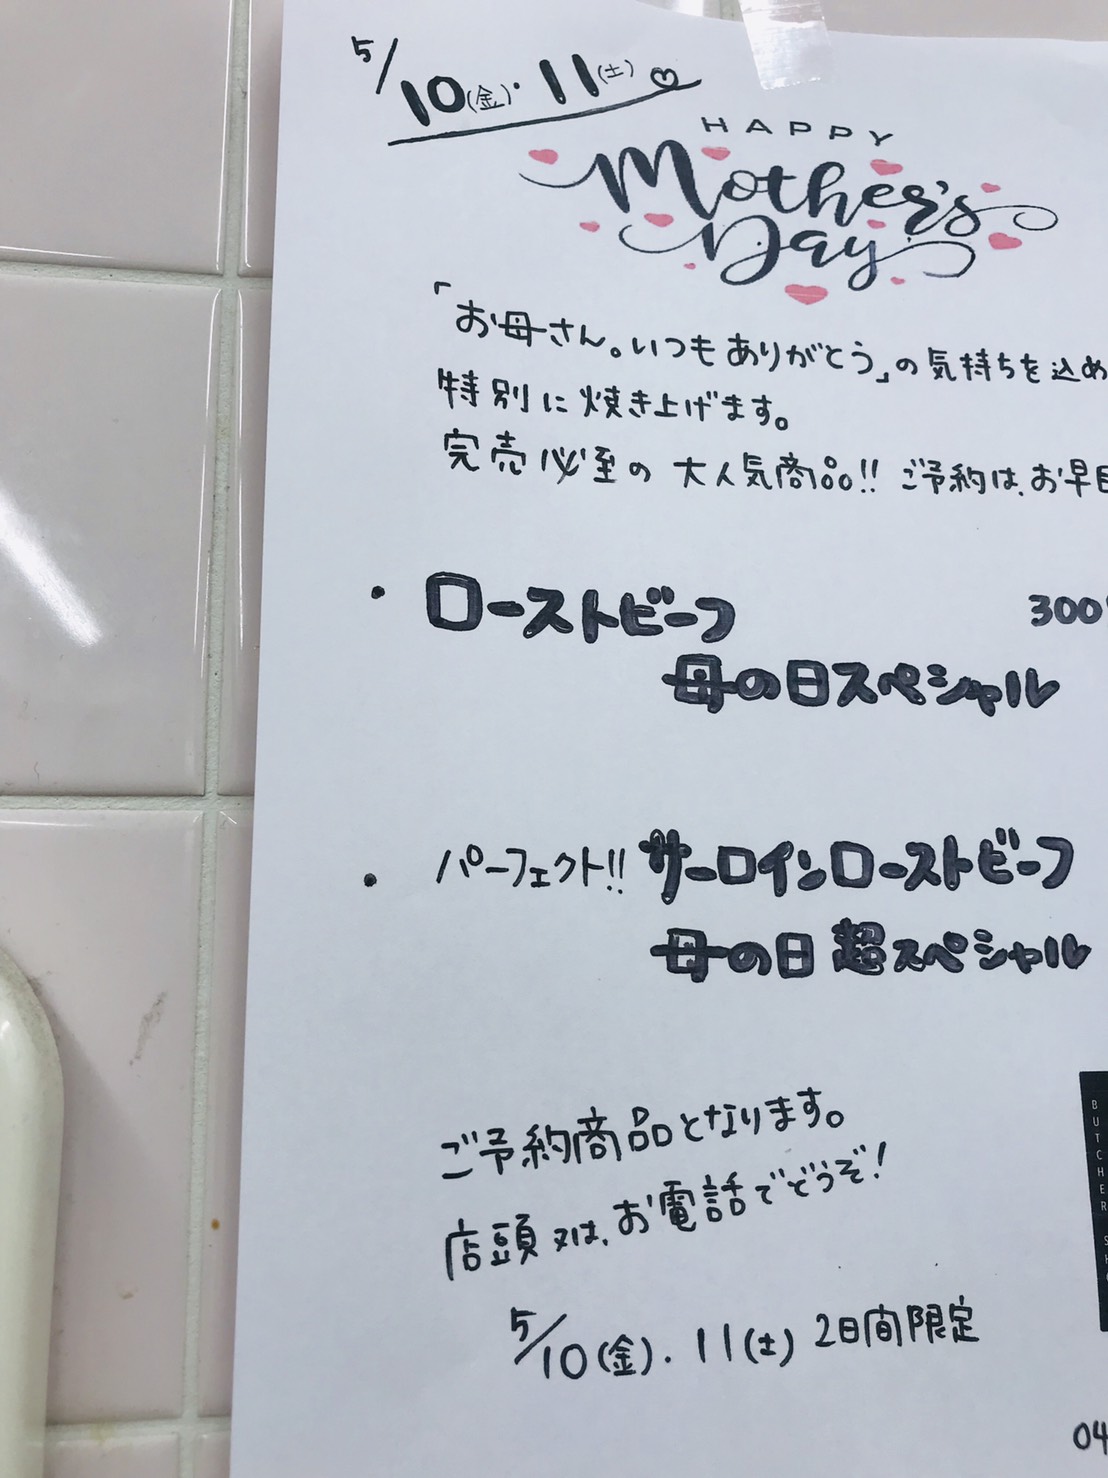 5/10(金)・11(土)
HAPPY
Mother's
Day
「お母さん。いつもありがとう」の気持ちを込め
特別に焼き上げます。
完売必至の大人気商品!! ご予約は、お早目
・ローストビーフ 300
母の日スペシャル
・パーフェクト!! サーロインローストビーフ
母の日超スペシャル
ご予約商品となります。
店頭又は、お電話でどうぞ!
5/10(金)・11(土) 2日間限定
BUTCHER
04